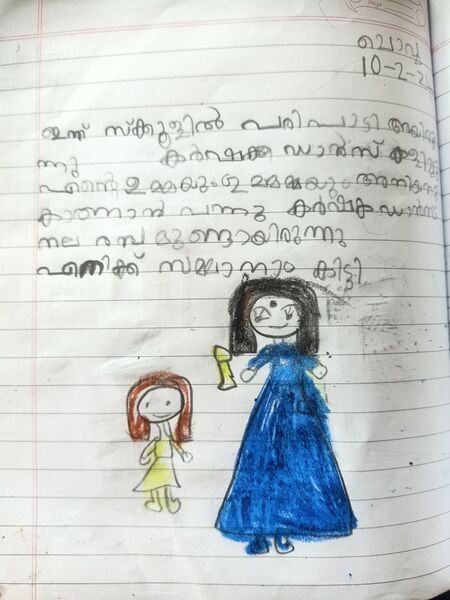 ചൊവ്വ
10-2-2
ഇന്ന് സ്കൂളിൽ പരിപാട്ടി
ന്നു കർഷക ഡാൻസ് കളിച്ചു
എന്റെ ഉമ്മയും ഉമ്മമ്മയും അനിയനും
കാണാൻ വന്നു കർഷക ഡാൻസ്
നല രസമുണ്ടായിരുന്നു
എനിക്ക് സമ്മാനം കിട്ടി